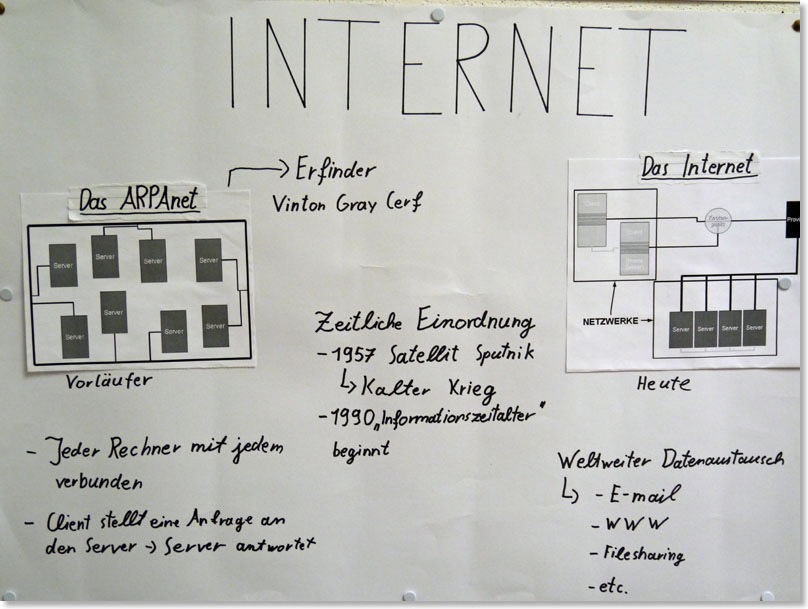 INTERNET
Das ARPAnet
Server
Server
Server
Server
Server
Server
Server
Server
Vorläufer
- Jeder Rechner mit jedem
verbunden
- Client stellt eine Anfrage an
den Server -> Server antwortet
→ Erfinder
Vinton Gray Cerf
Zeitliche Einordnung
- 1957 Satellit Sputnik
↳ Kalter Krieg
- 1990 „Informationszeitalter"
beginnt
Das Internet
Client
Client
NETZWERKE
Server
Server
Server
Server
Heute
Weltweiter Datenaustausch
↳ - E-mail
- WWW
- Filesharing
- etc.